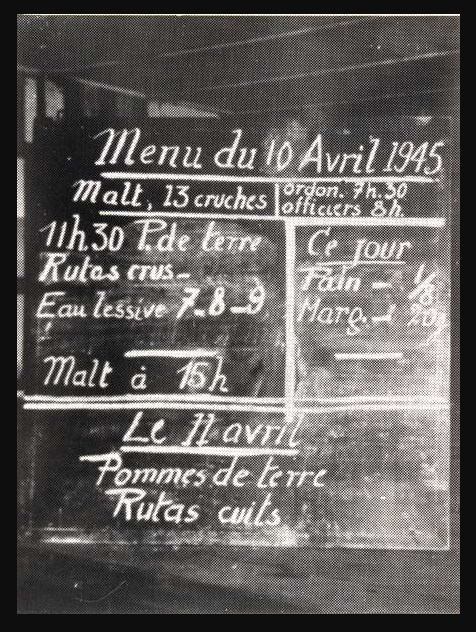 Menu du 10 Avril 1945
Malt, 13 cruches
ordon. 7h.30
officiers 8h.
11h30 P. de terre
Rutas crus -
Eau lessive 7-8-9
Malt à 15h
Ce jour
Pain - 1/8
Marg. - 20g
Le 11 avril
Pommes de terre
Rutas cuits